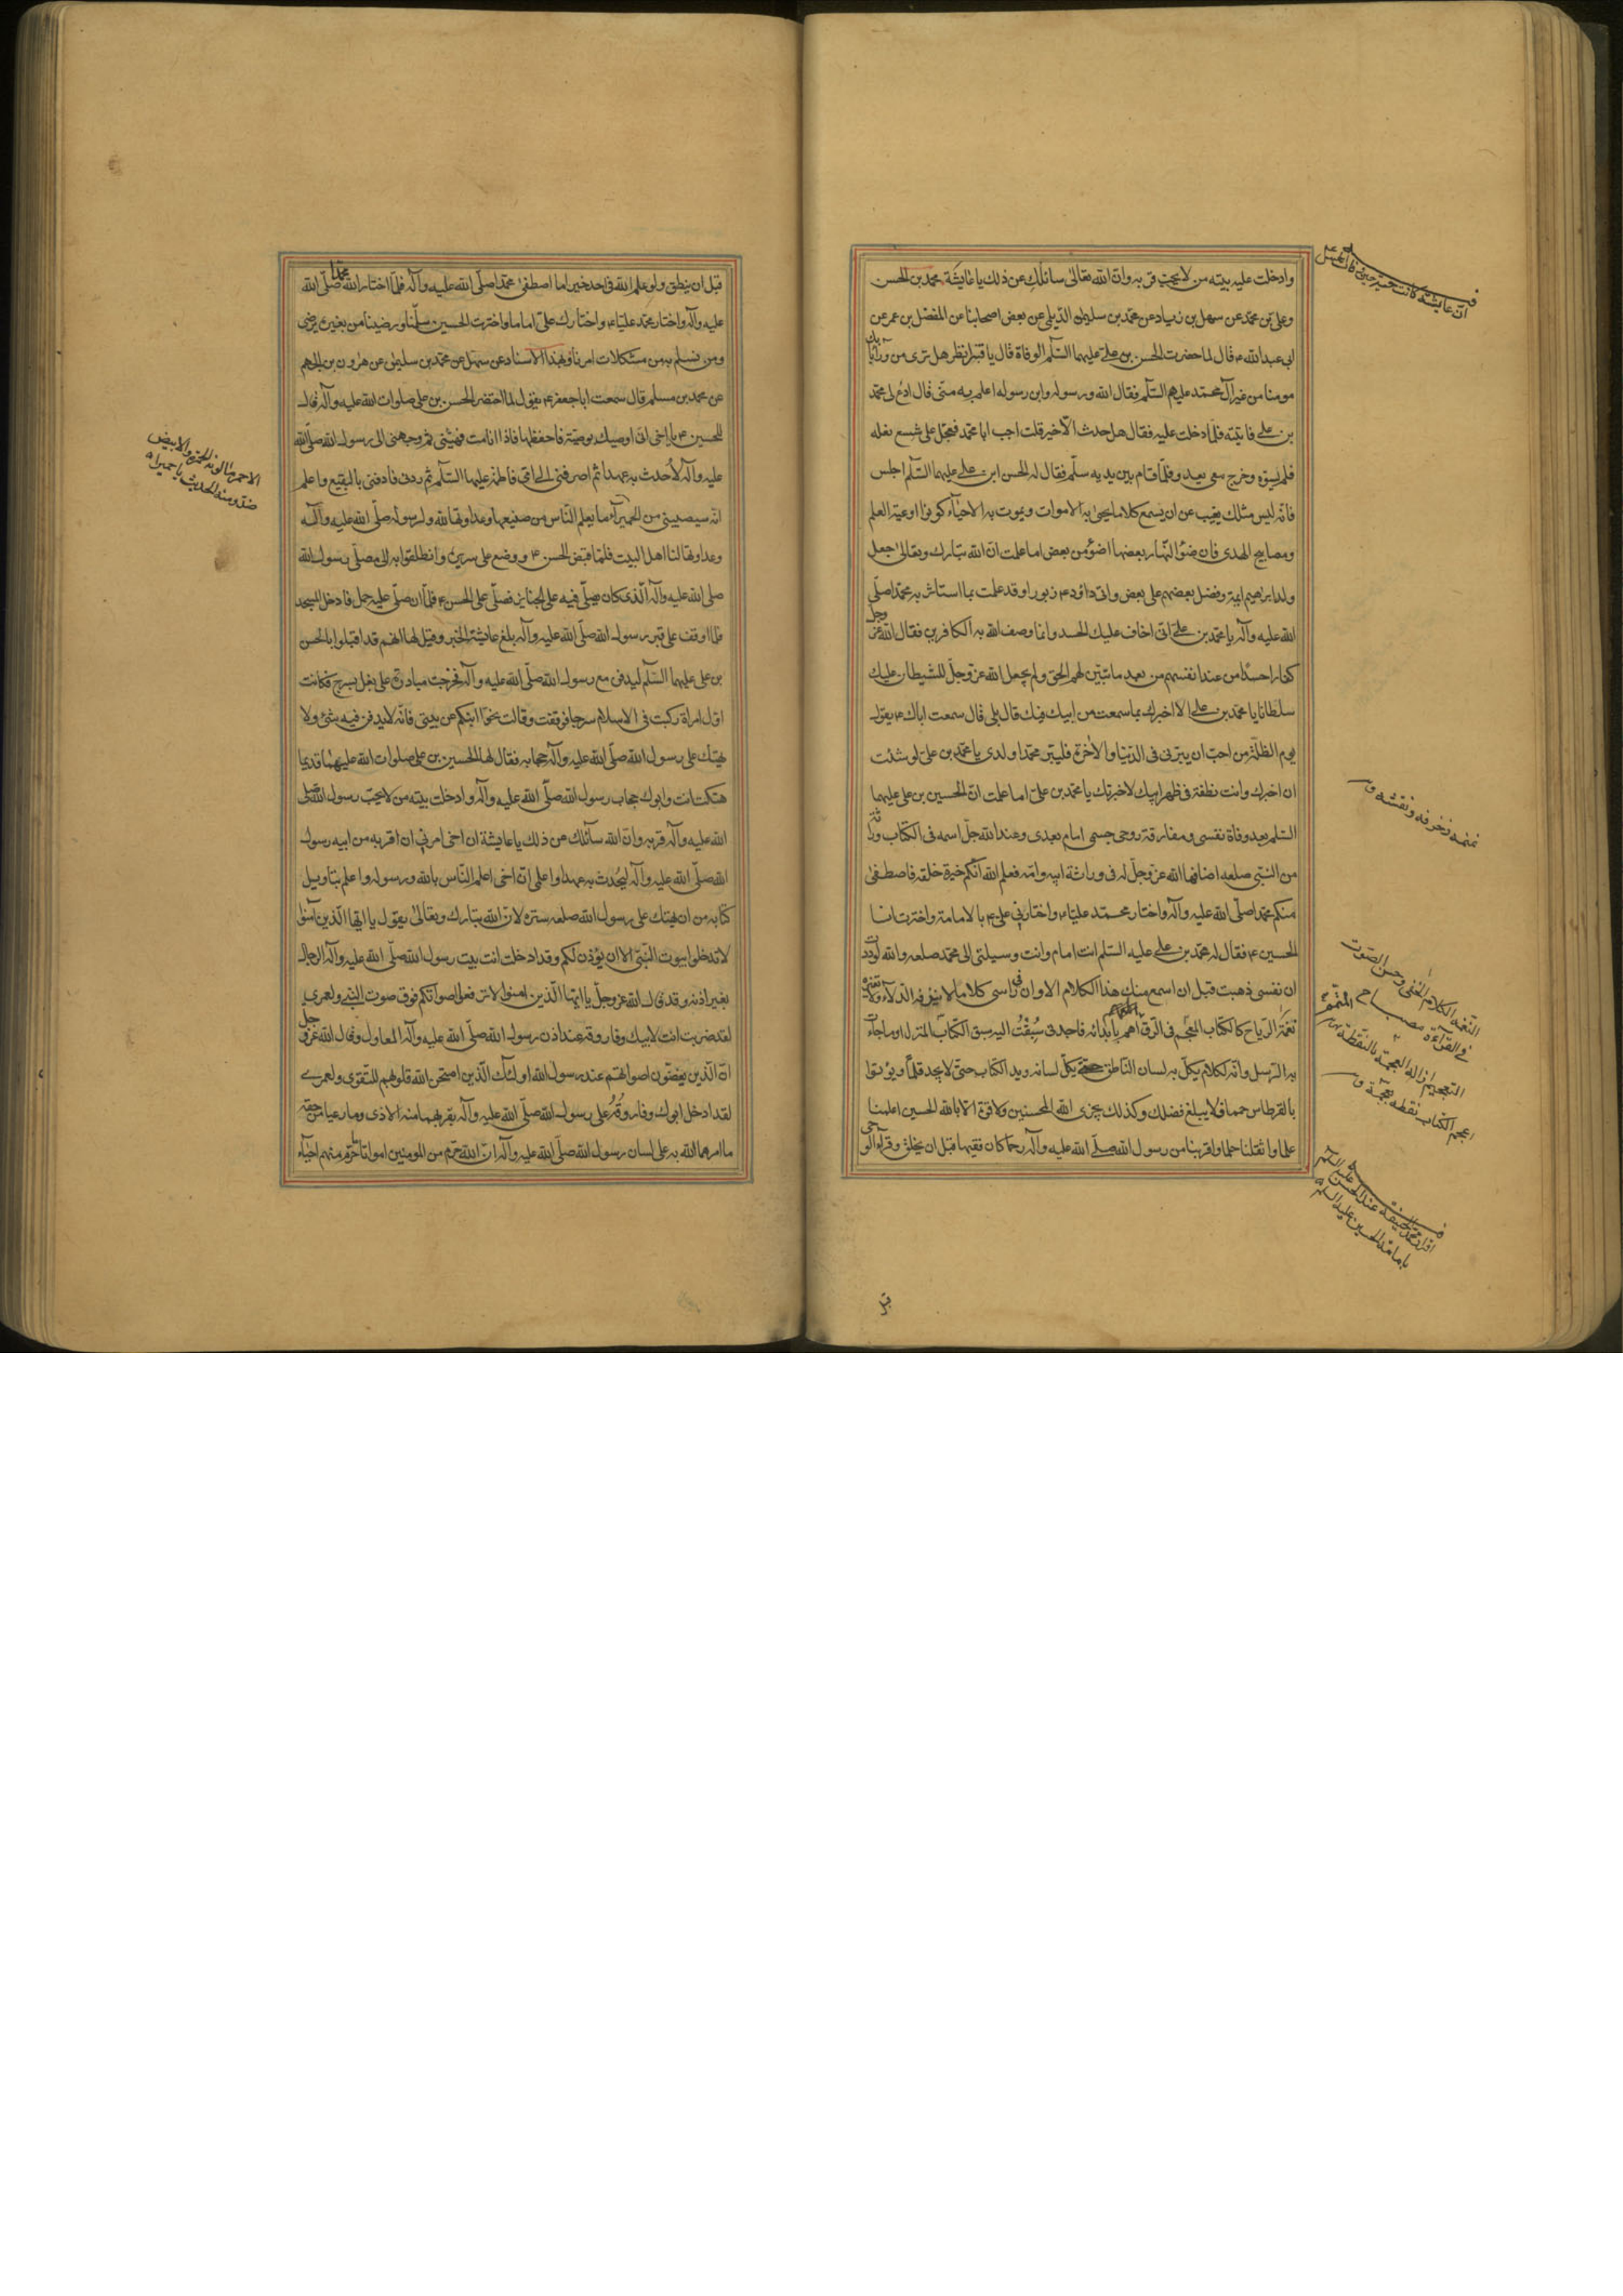 وادخلت عليه بيته من لا يحب قربه وان الله تعالى سائلك عن ذلك يا عايشة محمد بن الحسن
وعلى بن محمد عن سهل بن زياد عن محمد بن سليمان الديلمى عن بعض اصحابنا عن المفضل بن عمر عن
ابى عبد الله ع قال لما حضرت الحسن بن على عليهما السلم الوفاة قال يا قنبر انظر هل ترى من وراء بابك
مومنا من غير آل محمد عليهم السلم فقال الله ورسوله وابن رسوله اعلم به منى قال ادع لى محمد
بن على فاتيته فلما دخلت عليه فقال هل حدث الا خير قلت اجب ابا محمد فعجل على شسع نعله
فلم يسوه وخرج معى يعدو فلما قام بين يديه سلم فقال له الحسن ابن على عليهما السلم اجلس
فانه ليس مثلك يغيب عن ان يسمع كلاما يحيى به الاموات ويموت به الاحياء كونوا اوعية العلم
ومصابيح الهدى فان ضوء النهار بعضها اضوء من بعض اما علمت ان الله تبارك وتعالى جعل
ولد ابرهيم ايمة وفضل بعضهم على بعض واتى داود ع زبورا وقد علمت بما استاثر به محمد صلى
الله عليه وآله يا محمد بن على انى اخاف عليك الحسد وانما وصف الله به الكافرين فقال الله عز وجل
كفارا حسدا من عند انفسهم من بعد ما تبين لهم الحق ولم يجعل الله عز وجل للشيطان عليك
سلطانا يا محمد بن على الا اخبرك بما سمعت من ابيك فيك قال بلى قال سمعت اباك ع يقول
يوم الظلة من احب ان يبرنى فى الدنيا والاخرة فليبر محمدا ولدى يا محمد بن على لو شئت
ان اخبرك وانت نطفة فى ظهر ابيك لاخبرتك يا محمد بن على اما علمت ان الحسين بن على عليهما
السلم بعد وفاة نفسى ومفارقة روحى جسمى امام بعدى وعند الله جل اسمه فى الكتاب وراثة
من النبى صلعم اضافها الله عز وجل له فى وراثة ابيه وامه فعلم الله انكم خيرة خلقه فاصطفى
منكم محمدا صلى الله عليه وآله واختار محمد عليا ع واختارنى على ع بالامامة واخترت انا
الحسين ع فقال له محمد بن على عليه السلم انت امام وانت وسيلتى الى محمد صلعم والله لوددت
ان نفسى ذهبت قبل ان اسمع منك هذا الكلام الا وان فى راسى كلاما لا ينزفه الدلاء ولا تغيره
نغمة الرياح كالكتاب المعجم فى الرق اهم بابدائه فاجدنى سبقت اليه سبق الكتاب المنزل او ما جاءت
به الرسل وانه لكلام يكل به لسان الناطق يكل لسانه ويد الكتاب حتى لا يجد قلما ويؤتوا
بالقرطاس حمما فلا يبلغ فضلك وكذلك يجزى الله المحسنين ولا قوة الا بالله الحسين اعلمنا
علما واثقلنا حلما واقربنا من رسول الله صلى الله عليه وآله رحما كان فقيها قبل ان يخلق وقرأ الوحى
ان عايشة كانت
نمنمه زخرفه ونقشه
النغمه الكلام الخفى وحسن الصوت
فى القرآءة مصباح
التعجيم ازالة العجمة بالنقطة
اعجم الكتاب نقطه
عند الحسن عليه السلم
بامامة الحسين عليه السلم
قبل
قبل ان ينطق ولو علم الله فى احد خيرا ما اصطفى محمدا صلى الله عليه وآله فلما اختار الله محمدا صلى الله
عليه وآله واختار محمد عليا ع واختارك على اماما واخترت الحسين سلمنا ورضينا من بغيره يرضى
ومن نسلم به من مشكلات امرنا وبهذا الاسناد عن سهل عن محمد بن سليمن عن هرون بن الجهم
عن محمد بن مسلم قال سمعت ابا جعفر ع يقول لما احتضر الحسن بن على صلوات الله عليه وآله قال
للحسين ع يا اخى انى اوصيك بوصية فاحفظها فاذا انا مت فهيئنى ثم وجهنى الى رسول الله صلى الله
عليه وآله لاحدث به عهدا ثم اصرفنى الى امى فاطمة عليها السلم ثم ردنى فادفنى بالبقيع واعلم
انه سيصيبنى من الحميراء ما يعلم الناس من صنيعها وعداوتها لله ولرسوله صلى الله عليه وآله
وعداوتها لنا اهل البيت فلما قبض الحسن ع ووضع على سريره وانطلقوا به الى مصلى رسول الله
صلى الله عليه وآله الذى كان يصلى فيه على الجنايز فصلى على الحسن ع فلما ان صلى عليه حمل فادخل المسجد
فلما اوقف على قبر رسول الله صلى الله عليه وآله بلغ عايشة الخبر وقيل لها انهم قد اقبلوا بالحسن
بن على عليهما السلم ليدفن مع رسول الله صلى الله عليه وآله فخرجت مبادرة على بغل بسرج فكانت
اول امراة ركبت فى الاسلام سرجا فوقفت وقالت نحوا ابنكم عن بيتى فانه لا يدفن فيه شئ ولا
يهتك على رسول الله صلى الله عليه وآله حجابه فقال لها الحسين بن على صلوات الله عليهما قديما
هتكت انت وابوك حجاب رسول الله صلى الله عليه وآله وادخلت بيته من لا يحب رسول الله صلى
الله عليه وآله قربه وان الله سائلك عن ذلك يا عايشة ان اخى امرنى ان اقربه من ابيه رسول
الله صلى الله عليه وآله ليحدث به عهدا واعلمى ان اخى اعلم الناس بالله ورسوله واعلم بتاويل
كتابه من ان يهتك على رسول الله صلعم ستره لان الله تبارك وتعالى يقول يا ايها الذين آمنوا
لا تدخلوا بيوت النبى الا ان يؤذن لكم وقد ادخلت انت بيت رسول الله صلى الله عليه وآله الرجال
بغير اذنه وقد قال الله عز وجل يا ايها الذين امنوا لا ترفعوا اصواتكم فوق صوت النبى ولعمرى
لقد ضربت انت لابيك وفاروقه عند اذن رسول الله صلى الله عليه وآله المعاول وقال الله عز وجل
ان الذين يغضون اصواتهم عند رسول الله اولئك الذين امتحن الله قلوبهم للتقوى ولعمرى
لقد ادخل ابوك وفاروقه على رسول الله صلى الله عليه وآله بقربهما منه الاذى وما رعيا من حقه
ما امرهما الله به على لسان رسول الله صلى الله عليه وآله ان الله حرم من المومنين امواتا ما حرم منهم احياء
الاحمر ما لونه الحمرة والابيض
ضد ومنه الحديث يا حميراء